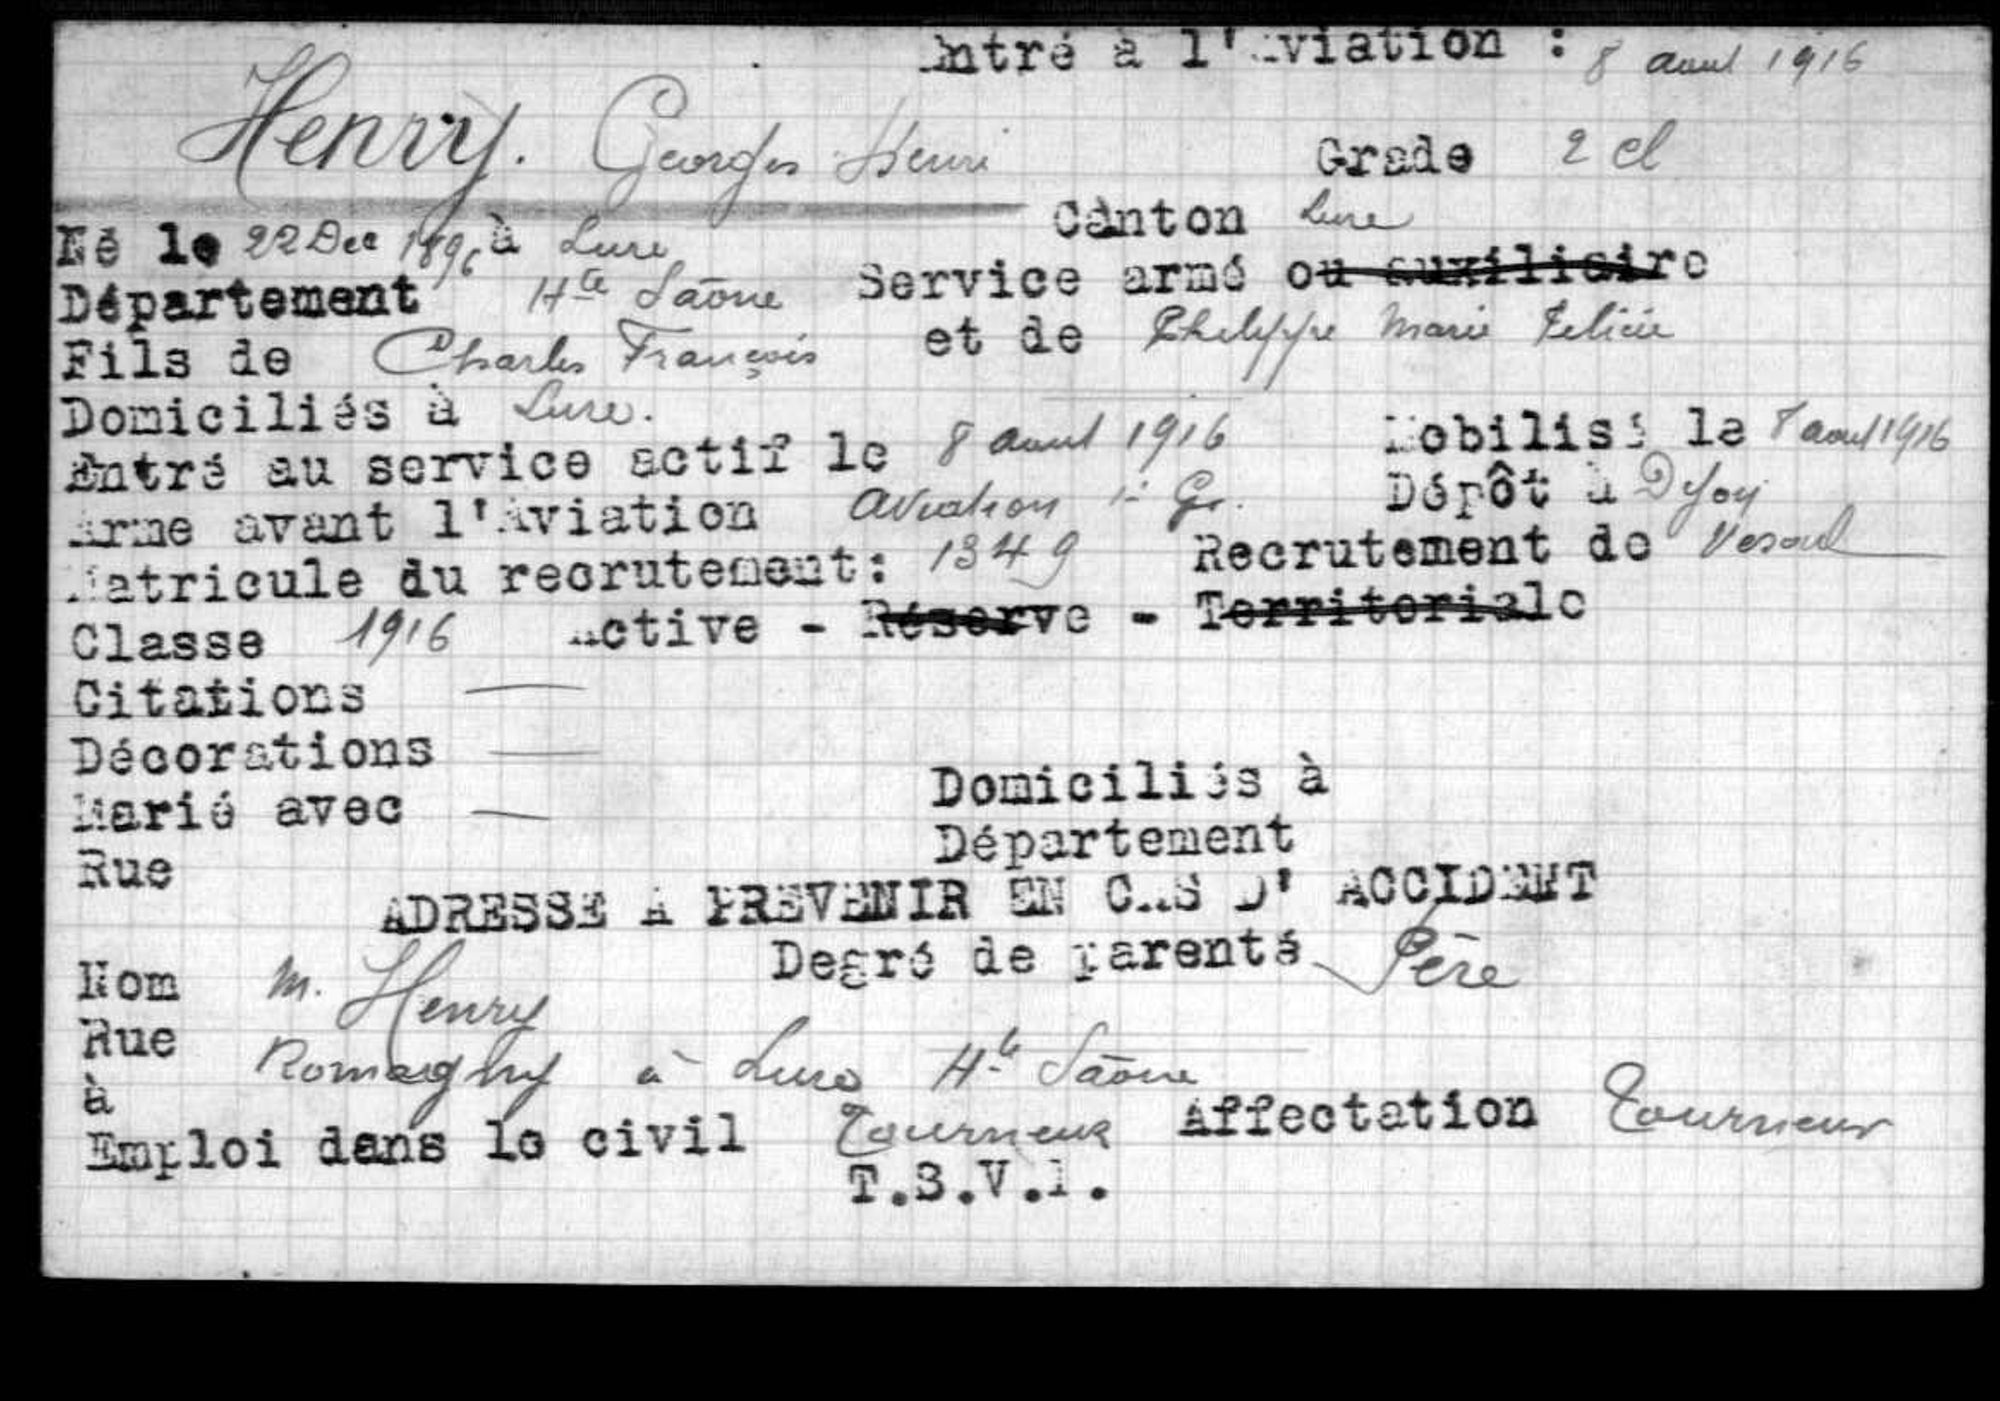 Entré à l'Aviation : 8 aout 1916
Henry. Georges Henri Grade 2 cl
Né le 22 Dec 1896 à Lure Canton Lure
Département Hte Saône Service armé ou auxiliaire
Fils de Charles François et de Philippe Marie Felicie
Domiciliés à Lure.
Entré au service actif le 8 aout 1916 Mobilisé le 8 aout 1916
Arme avant l'Aviation Aviation 1er Gr. Dépôt à Dijon
Matricule du recrutement: 1349 Recrutement de Vesoul
Classe 1916 Active - Réserve - Territoriale
Citations —
Décorations —
Marié avec — Domiciliés à
Rue Département
ADRESSE A PREVENIR EN CAS D' ACCIDENT
Nom M. Henry Degré de parenté Père
Rue Romagny à Lure Hte Saône
à
Emploi dans le civil Tourneur Affectation Tourneur
T.S.V.P.